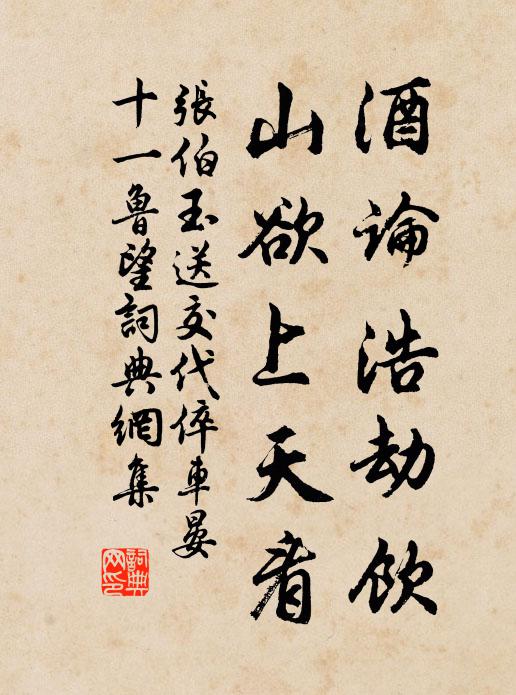 酒論浩劫飲
山欲上天看
張伯玉送交代倅車晏
十一魯望詞典網集
詞典
网印